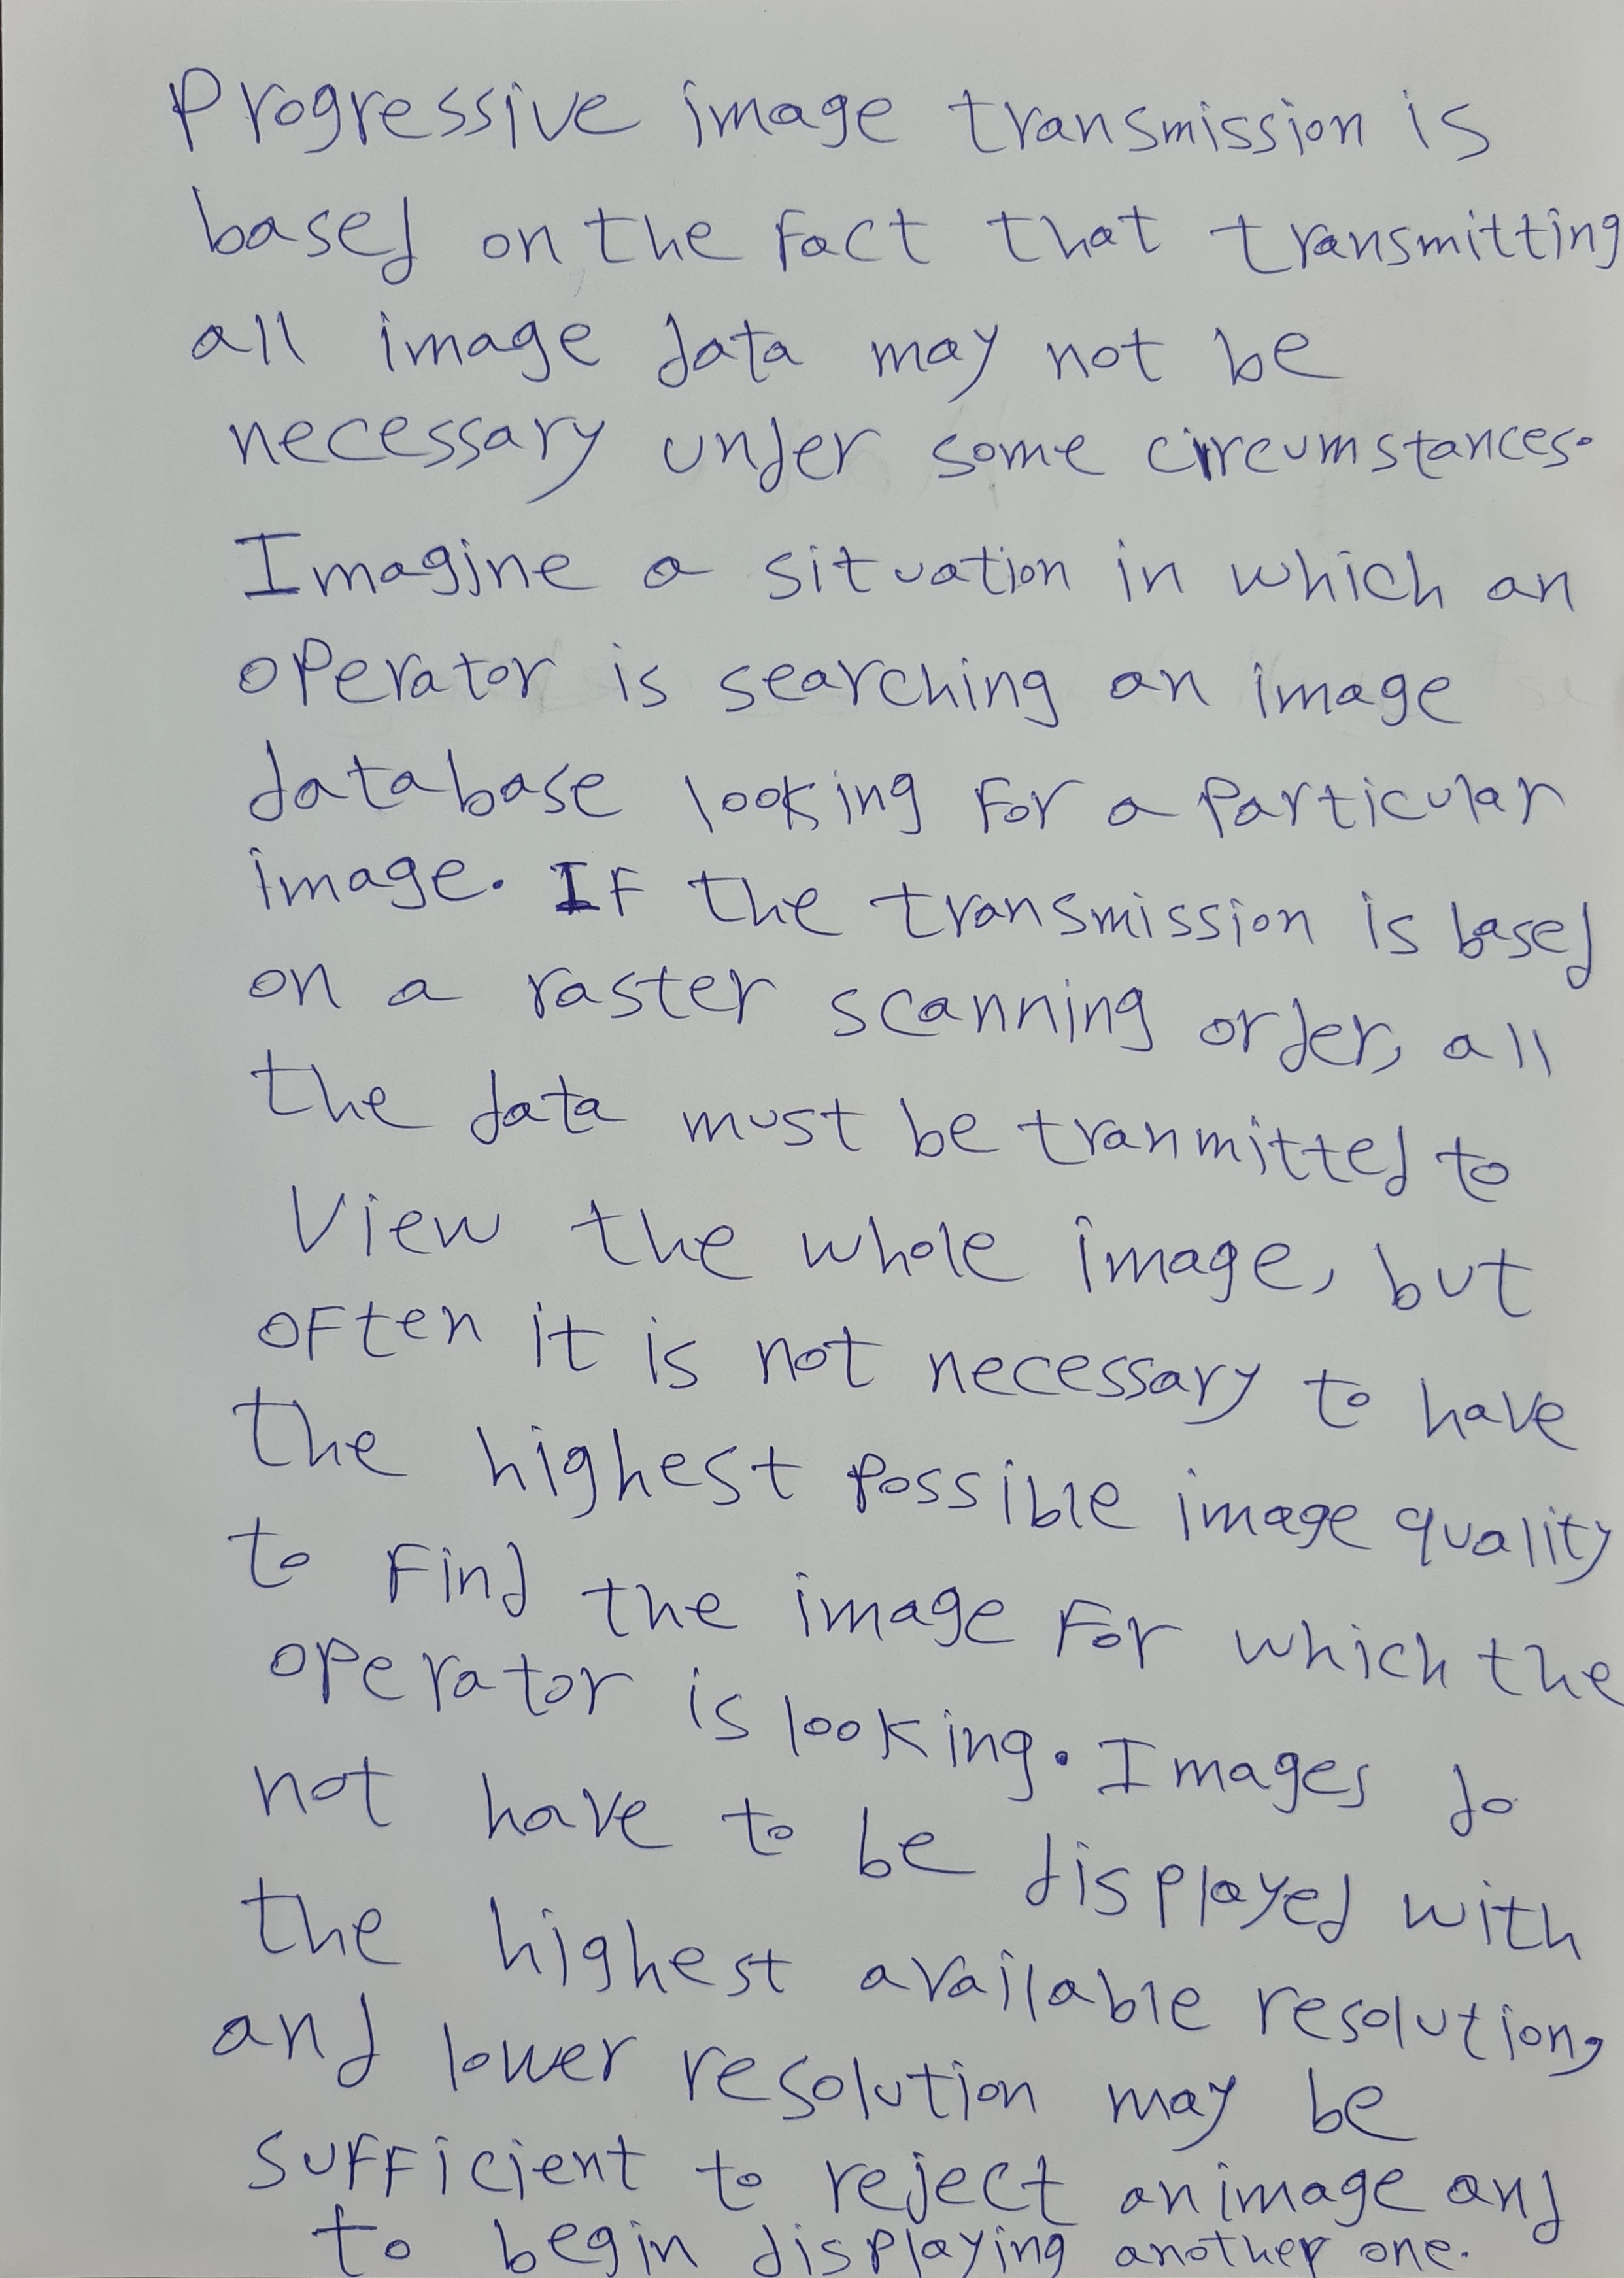 Progressive image transmission is
based on the fact that transmitting
all image data may not be
necessary under some circumstances.
Imagine a situation in which an
operator is searching an image
database looking for a particular
image. If the transmission is based
on a raster scanning order, all
the data must be tranmitted to
View the whole image, but
often it is not necessary to have
the highest possible image quality
to find the image for which the
operator is looking. Images do
not have to be displayed with
the highest available resolution,
and lower resolution may be
sufficient to reject an image and
to begin displaying another one.